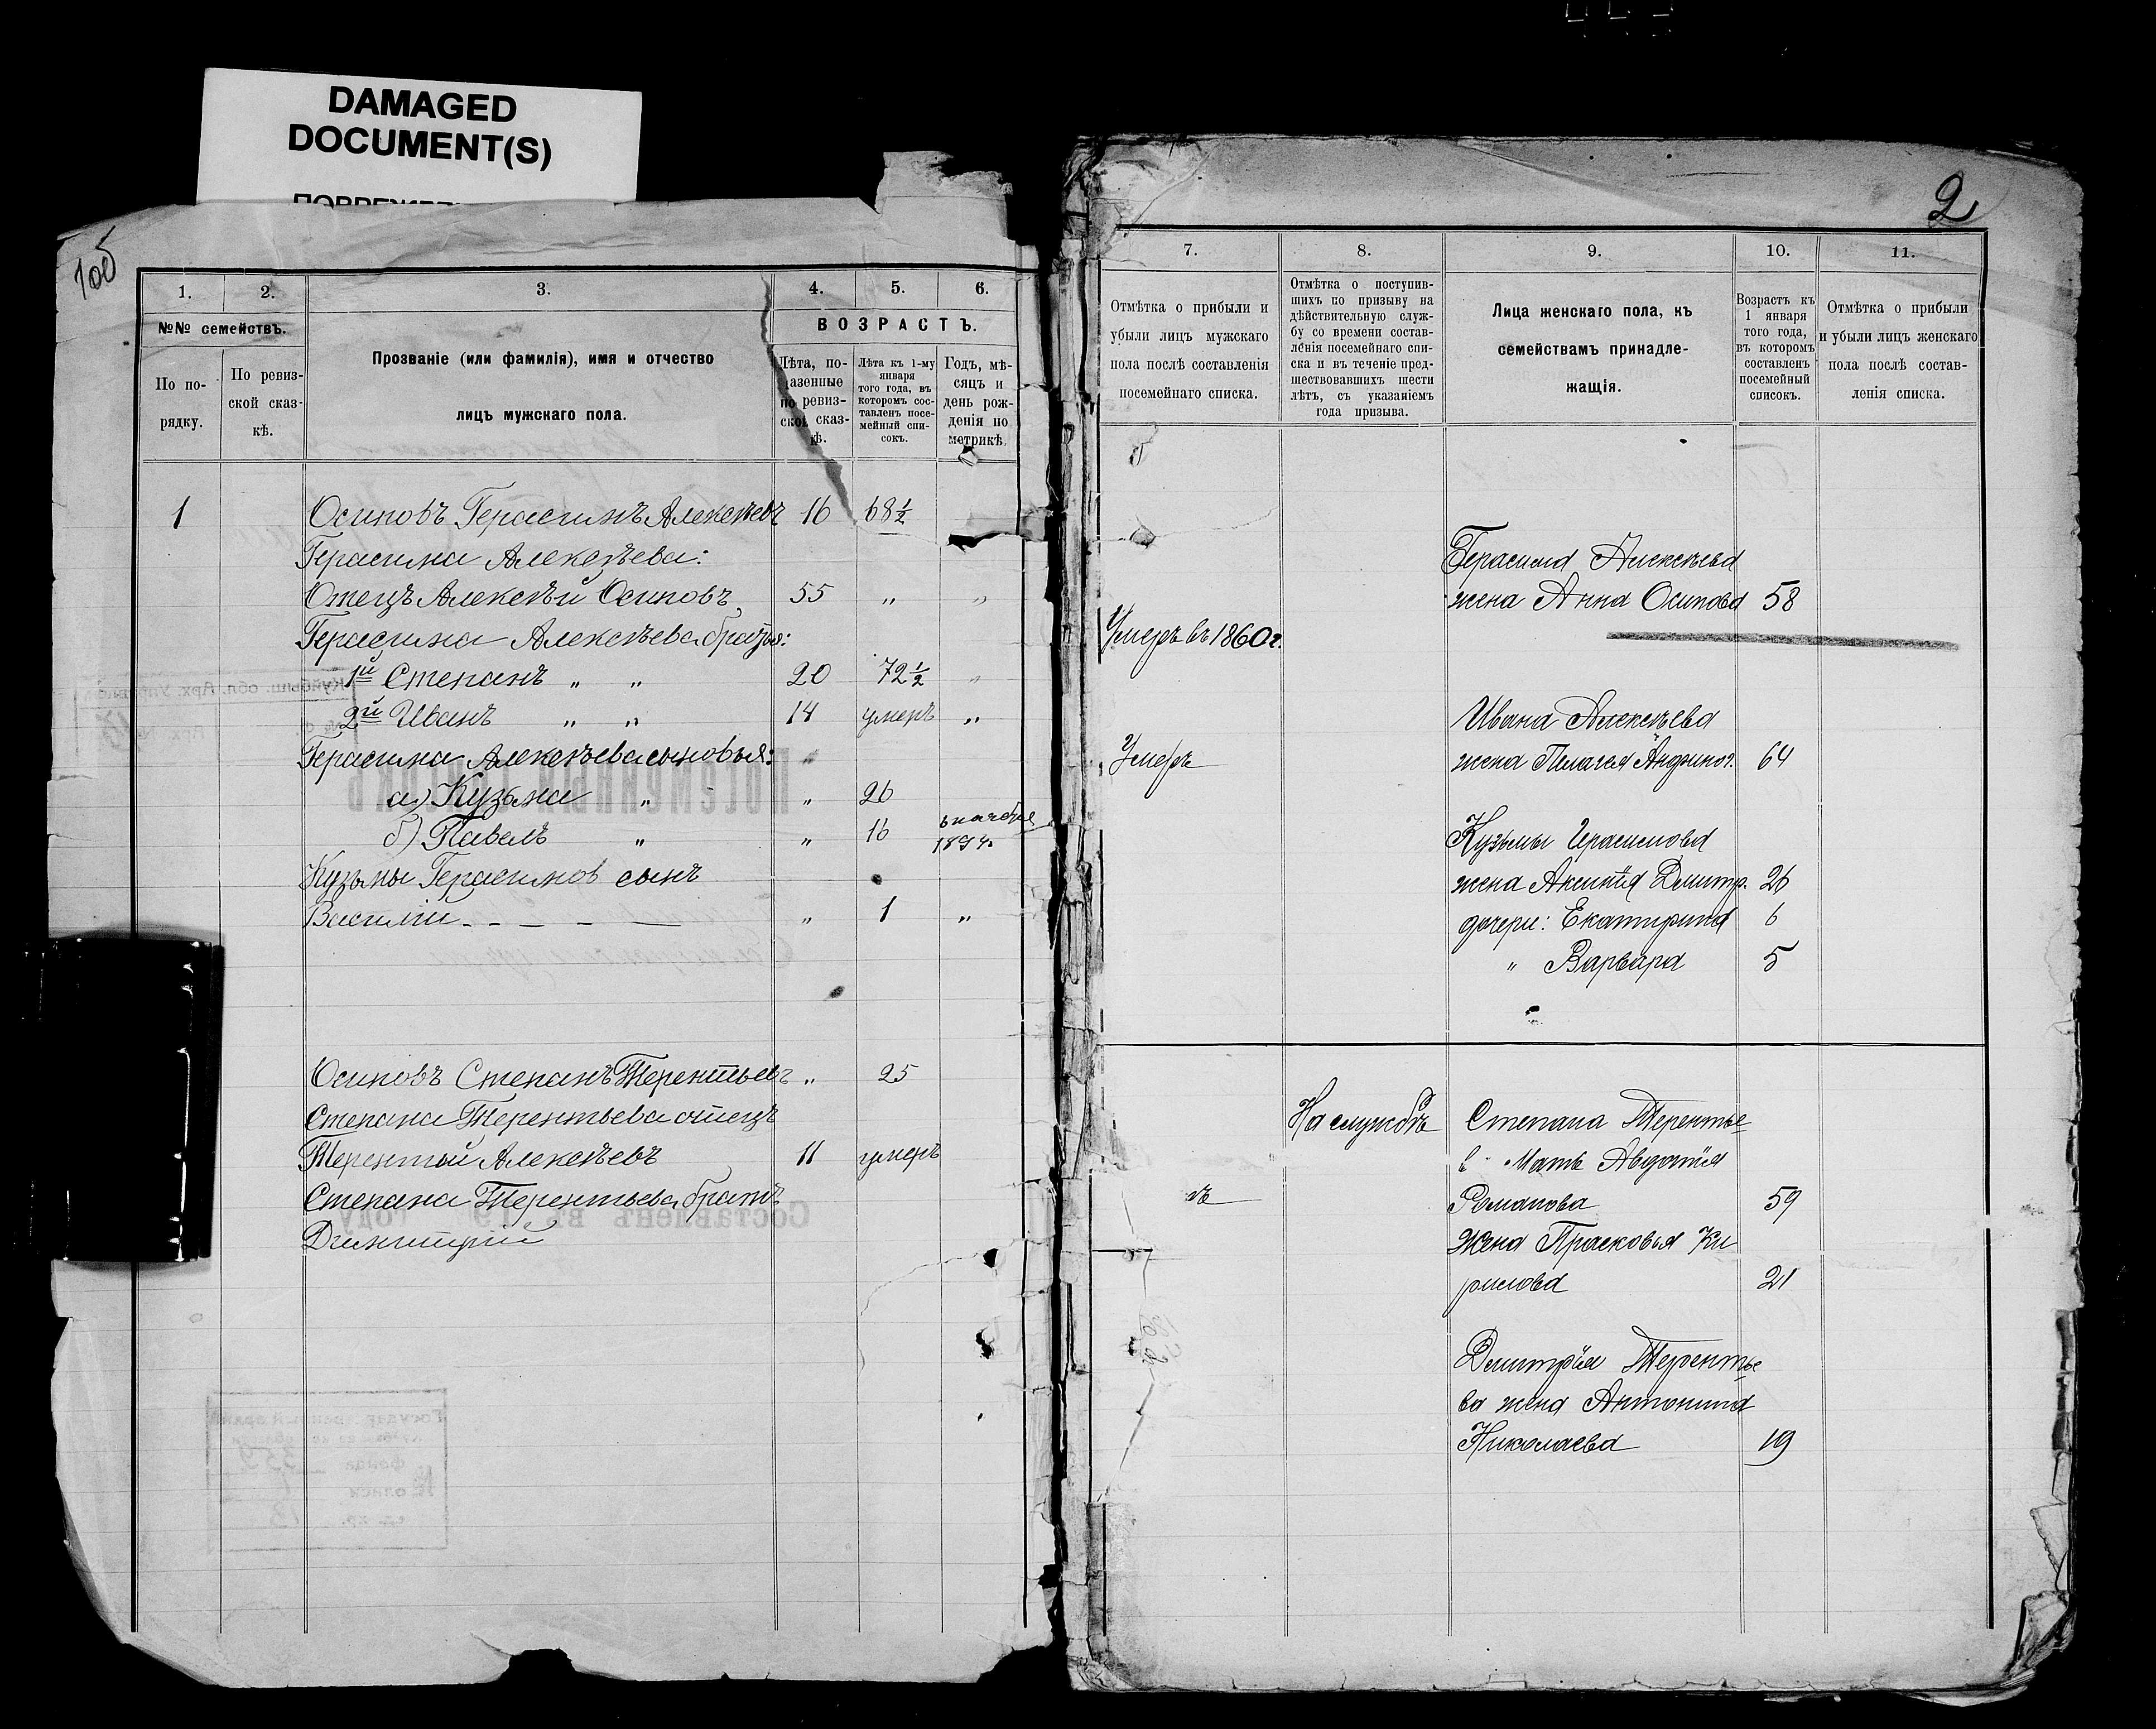 DAMAGED
DOCUMENT(S)
1об
1.
2.
3.
4.
5.
6.
№№ семействъ.
ВОЗРАСТЪ.
По по-
рядку.
По ревиз-
ской сказ-
кѣ.
Прозваніе (или фамилія), имя и отчество
лицъ мужскаго пола.
Лѣта, по-
казанные
по ревиз-
ской сказ-
кѣ.
Лѣта къ 1-му
января
того года, въ
которомъ сос-
тавленъ посе-
мейный спи-
сокъ.
Годъ, мѣ-
сяцъ и
день рож-
денія по
метрикѣ.
1 Осиповъ Герасимъ Алексѣевъ 16 68½
Герасима Алексѣева:
Отецъ Алексѣй Осиповъ 55 „ „
Герасима Алексѣева братья:
1й Степанъ „ „ 20 72½ „
2й Иванъ „ „ 14 умеръ „
Герасима Алексѣева сыновья:
а) Кузьма „ „ 26
б) Павелъ „ „ 16
Кузьмы Герасимов сынъ
Василій „ 1 „
Осиповъ Степанъ Терентьевъ „ 25
Степана Терентьева отецъ
Терентий Алексѣевъ 11 умеръ
Степана Терентьева братъ
Димитрий
2
7.
8.
9.
10.
11.
Отмѣтка о прибыли и
убыли лицъ мужскаго
пола послѣ составленія
посемейнаго списка.
Отмѣтка о поступив-
шихъ по призыву на
дѣйствительную служ-
бу со времени состав-
ленія посемейнаго спи-
ска и въ теченіе пред-
шествовавшихъ шести
лѣтъ, съ указаніемъ
года призыва.
Лица женскаго пола, къ
семействамъ принадле-
жащія.
Возрастъ къ
1 января
того года,
въ которомъ
составленъ
посемейный
списокъ.
Отмѣтка о прибыли
и убыли лицъ женскаго
пола послѣ состав-
ленія списка.
Герасима Алексѣева
жена Анна Осипова 58
Умеръ въ 1860 г.
Ивана Алексѣева
Умеръ жена Пелагея 64
Кузьмы Герасимова
жена Аксинія Дмитр. 26
дочери: Екатирина 6
„ Варвара 5
На службѣ Степана Терентье
в Мать Авдотія
Романова 59
жена Прасковья Ки
рилова 21
Дмитрія Терентье
ва жена Антонина
Николаева 19